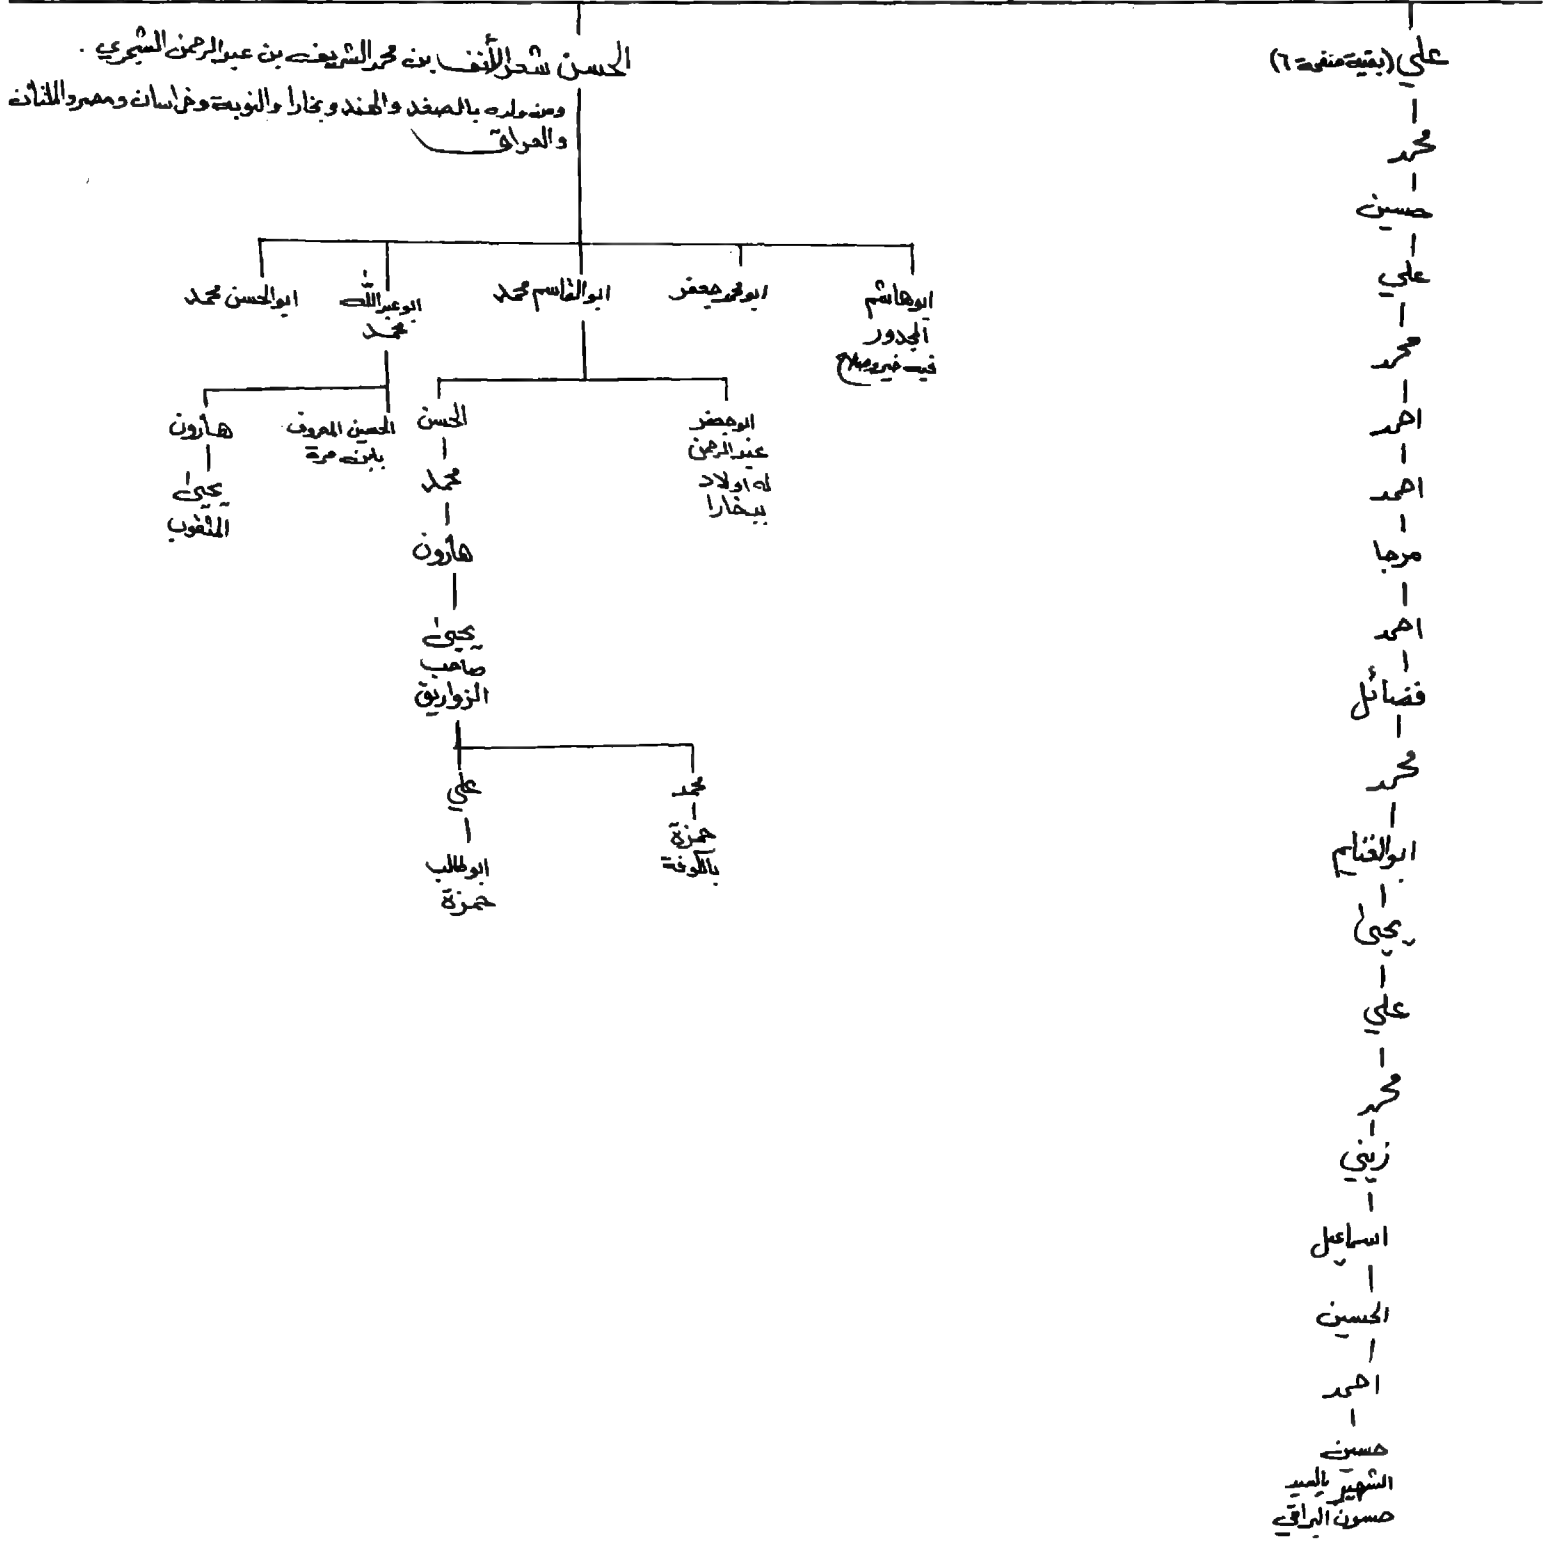 علي (بقية صفحة ٦)
محمد
حسين
علي
محمد
احمد
احمد
مرجا
احمد
فضائل
محمد
ابوالغنايم
يحيى
علي
محمد
زيني
اسماعيل
الحسين
احمد
حسين
الشهير بالسيد
حسون البراقي
الحسن شعر الأنف بن محمد الشريف بن عبدالرحمن الشجري .
ومن ولده بالصغد والهند وبخارا والنوبة وخراسان ومصر والملتان
والعراق
ابوهاشم
المجدور
فيه خير وصلاح
ابومحمد جعفر
ابوالقاسم محمد
ابوعبدالله
محمد
ابوالحسن محمد
ابوجعفر
عبدالرحمن
له اولاد
ببخارا
الحسن
محمد
هارون
يحيى
صاحب
الزواريق
محمد
حمزة
بالكوفة
علي
ابوطالب
حمزة
الحسين المعروف
بابن مرة
هارون
يحيى
المثقوب